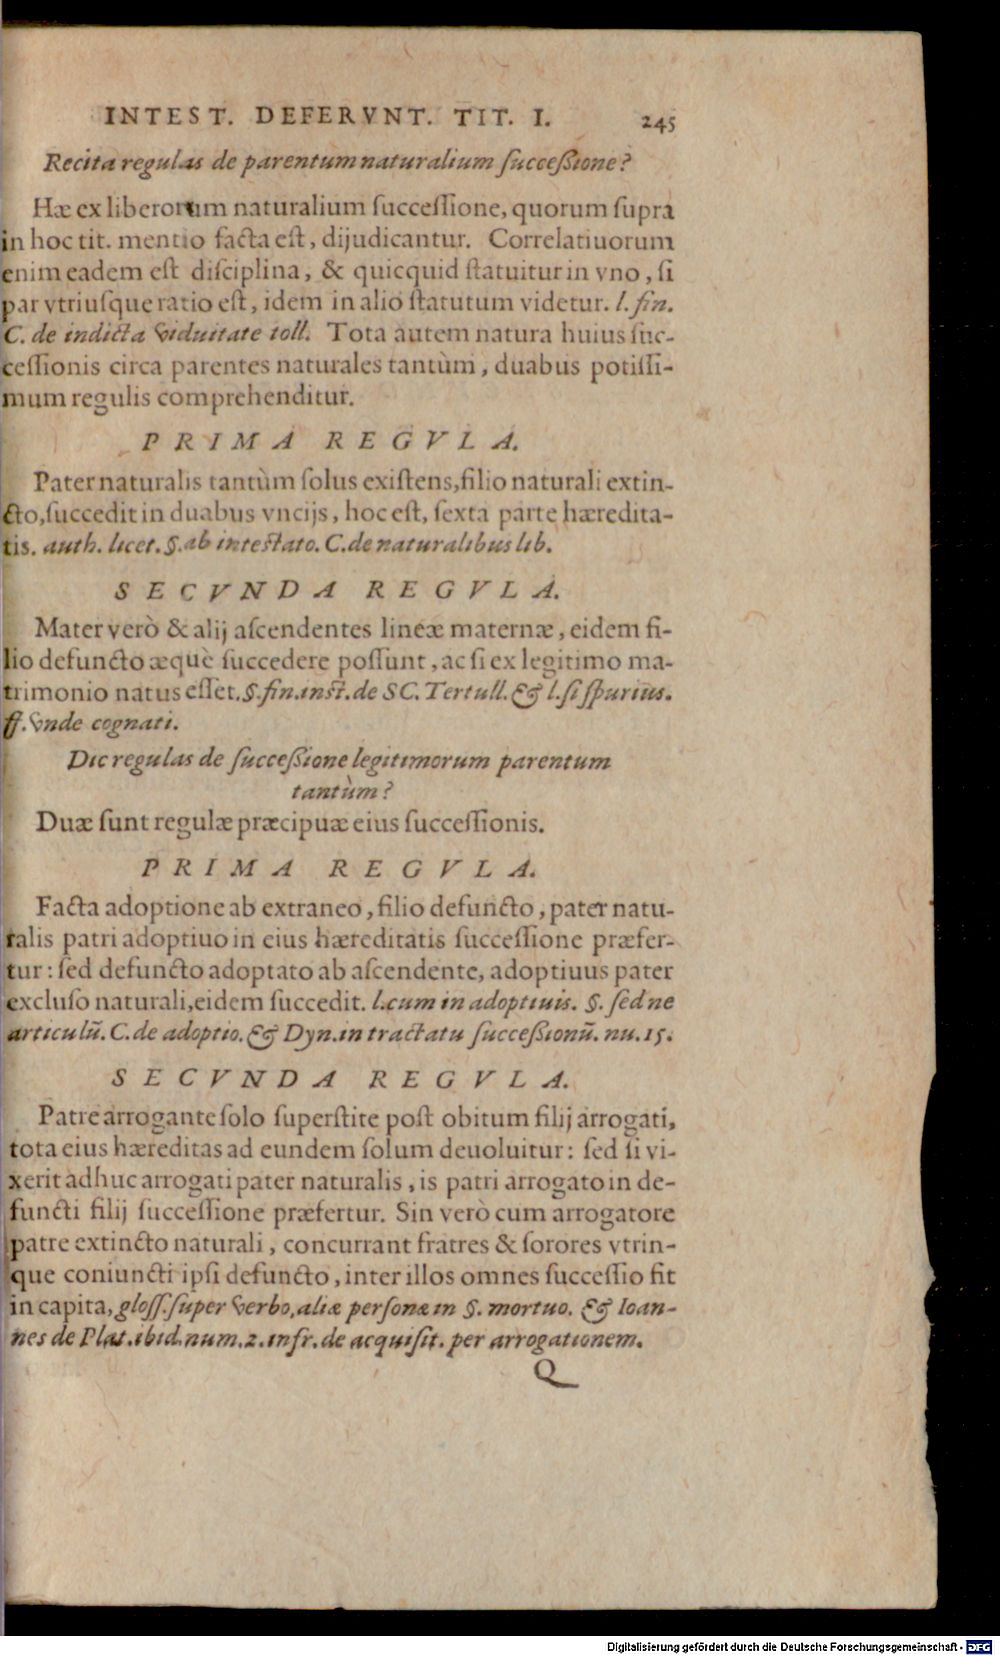 INTEST. DEFERVNT. TIT. I. 245
Recita regulas de parentum naturalium succeßione?
Hæ ex liberorum naturalium successione, quorum supra
in hoc tit. mentio facta est, dijudicantur. Correlatiuorum
enim eadem est disciplina, & quicquid statuitur in vno, si
par vtriusque ratio est, idem in alio statutum videtur. l. fin.
C. de indicta viduitate toll. Tota autem natura huius suc-
cessionis circa parentes naturales tantùm, duabus potissi-
mum regulis comprehenditur.
PRIMA REGVLA.
Pater naturalis tantùm solus existens, filio naturali extin-
cto, succedit in duabus vncijs, hoc est, sexta parte hæredita-
tis. auth. licet. §. ab intestato. C. de naturalibus lib.
SECVNDA REGVLA.
Mater verò & alij ascendentes lineæ maternæ, eidem fi-
lio defuncto æquè succedere possunt, ac si ex legitimo ma-
trimonio natus esset. §. fin. inst. de SC. Tertull. & l. si spurius.
ff. vnde cognati.
Dic regulas de succeßione legitimorum parentum
tantùm?
Duæ sunt regulæ præcipuæ eius successionis.
PRIMA REGVLA.
Facta adoptione ab extraneo, filio defuncto, pater natu-
ralis patri adoptiuo in eius hæreditatis successione præfer-
tur: sed defuncto adoptato ab ascendente, adoptiuus pater
excluso naturali, eidem succedit. l. cum in adoptiuis. §. sed ne
articulū. C. de adoptio. & Dyn. in tractatu succeßionū. nu. 15.
SECVNDA REGVLA.
Patre arrogante solo superstite post obitum filij arrogati,
tota eius hæreditas ad eundem solum deuoluitur: sed si vi-
xerit adhuc arrogati pater naturalis, is patri arrogato in de-
functi filij successione præfertur. Sin verò cum arrogatore
patre extincto naturali, concurrant fratres & sorores vtrin-
que coniuncti ipsi defuncto, inter illos omnes successio fit
in capita, gloss. super verbo, aliæ personæ in §. mortuo. & Ioan-
nes de Plat. ibid. num. 2. infr. de acquisit. per arrogationem.
Q
Digitalisierung gefördert durch die Deutsche Forschungsgemeinschaft - DFG